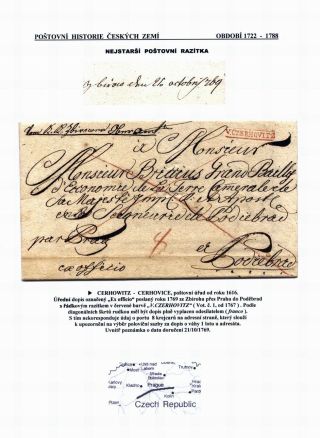 POŠTOVNÍ HISTORIE ČESKÝCH ZEMÍ OBDOBÍ 1722 - 1788
NEJSTARŠÍ POŠTOVNÍ RAZÍTKA
octobris 769
V.CZERHOWITZ
A Monsieur
Monsieur Briccius Grand Bailly
d'Economie de la Terre Camerale de
Sa Majesté
Seigneurie de Podiebrad
par Prag
8
à
Podiebrad
ex officio
CERHOWITZ - CERHOVICE, poštovní úřad od roku 1616.
Úřední dopis označený „Ex officio" poslaný roku 1769 ze Zbiroha přes Prahu do Poděbrad
s řádkovým razítkem v červené barvě „V.CZERHOWITZ" ( Vot. č. 1, od 1767 ) . Podle
diagonálních škrtů rudkou měl být dopis plně vyplacen odesílatelem ( franco ).
S tím nekoresponduje údaj o portu 8 krejcarů na adresní straně, který slouží
k upozornění na výběr poloviční sazby za dopis o váhy 1 lotu u adresáta.
Uvnitř poznámka o datu doručení 21/10/1769.
Most
Trutnov
Karlovy
Vary
Kladno
Prague
Kolín
Plzeň
Czech Republic